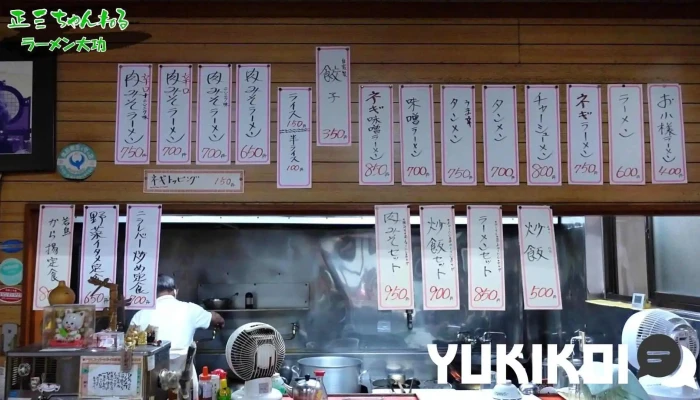 正三ちゃんねる
ラーメン大功
お子様ラーメン 400円
ラーメン 600円
ネギラーメン 750円
チャーシューメン 800円
タンメン 700円
タンメン 750円
味噌ラーメン 700円
ネギ味噌ラーメン 850円
餃子 350円
ライス 150円
半ライス 100円
肉みそラーメン 650円
肉みそラーメン 700円
辛口 肉みそラーメン 700円
辛口 肉みそラーメン 750円
トッピング 150円
炒飯 500円
ラーメンセット 850円
炒飯セット 900円
肉みそセット 950円
ニラレバー炒め定食 700円
野菜イタメ定食 650円
から揚定食
YUKIKOI